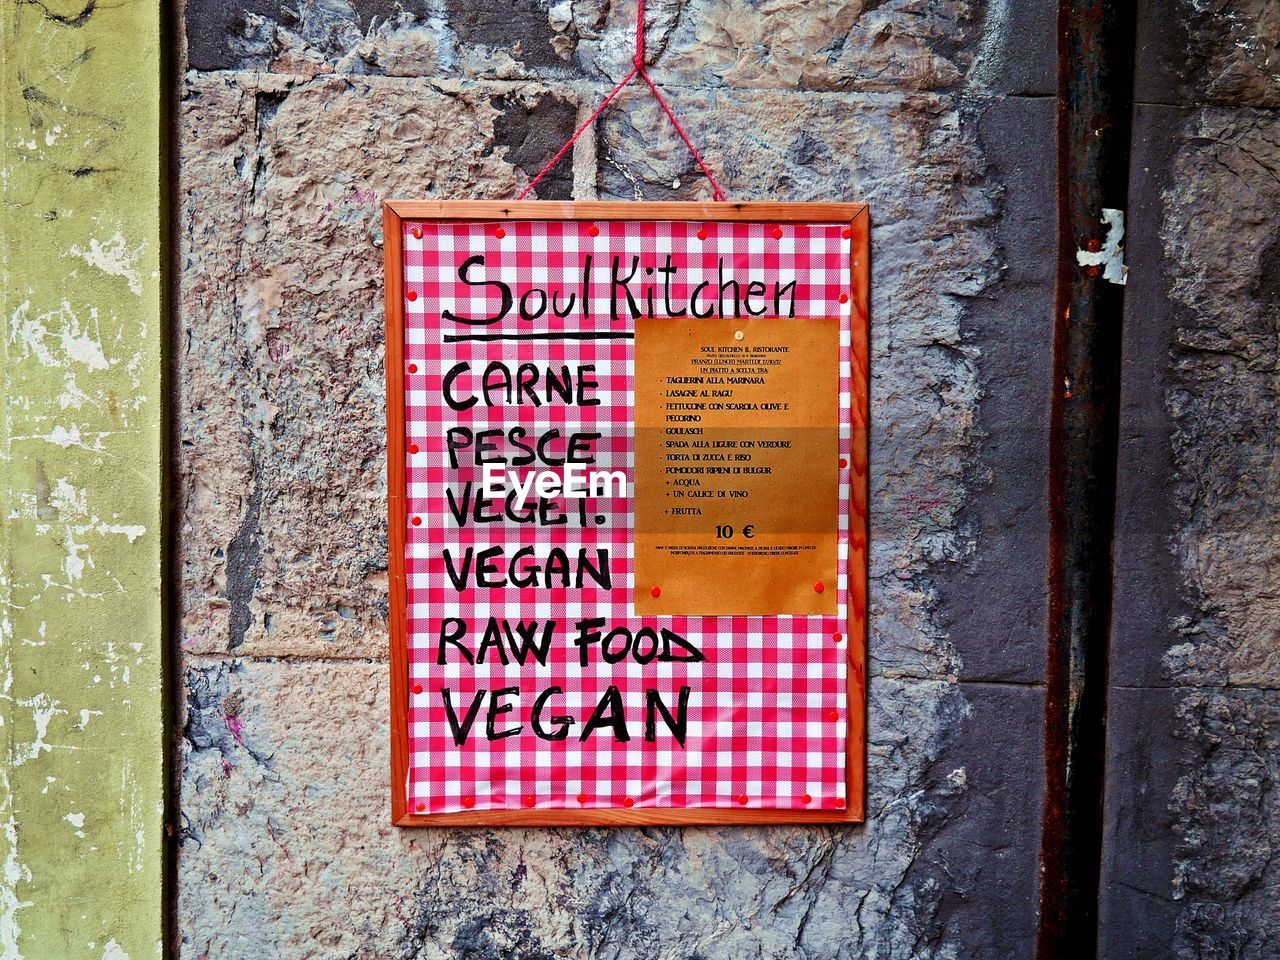 Soul Kitchen
CARNE
PESCE
VEGET.
VEGAN
RAW FOOD
VEGAN
SOUL KITCHEN IL RISTORANTE
PRANZO (LUNCH) MARTEDI' 17/10/17
UN PIATTO A SCELTA TRA:
· TAGLIERINI ALLA MARINARA
· LASAGNE AL RAGU'
· FETTUCCINE CON SCAROLA OLIVE E
PECORINO
· GOULASCH
· SPADA ALLA LIGURE CON VERDURE
· TORTA DI ZUCCA E RISO
· POMODORI RIPIENI DI BULGUR
+ ACQUA
+ UN CALICE DI VINO
+ FRUTTA
10 €
EyeEm